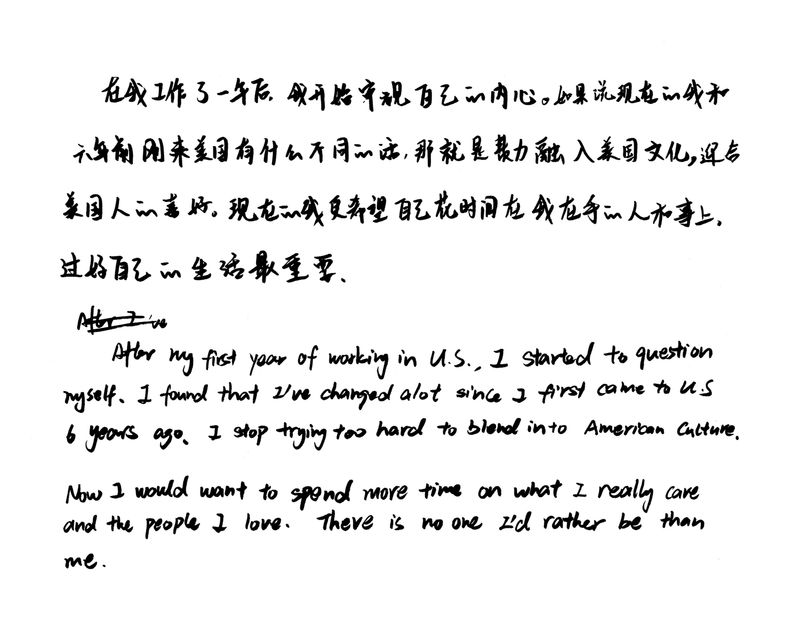 在我工作了一年后，我开始审视自己的内心。如果说现在的我和
六年前刚来美国有什么不同的话，那就是努力融入美国文化，迎合
美国人的喜好。现在的我更希望自己花时间在我在乎的人和事上，
过好自己的生活最重要。
After I've
After my first year of working in U.S., I started to question
myself. I found that I've changed alot since I first came to U.S
6 years ago. I stop trying too hard to blend into American Culture.
Now I would want to spend more time on what I really care
and the people I love. There is no one I'd rather be than
me.